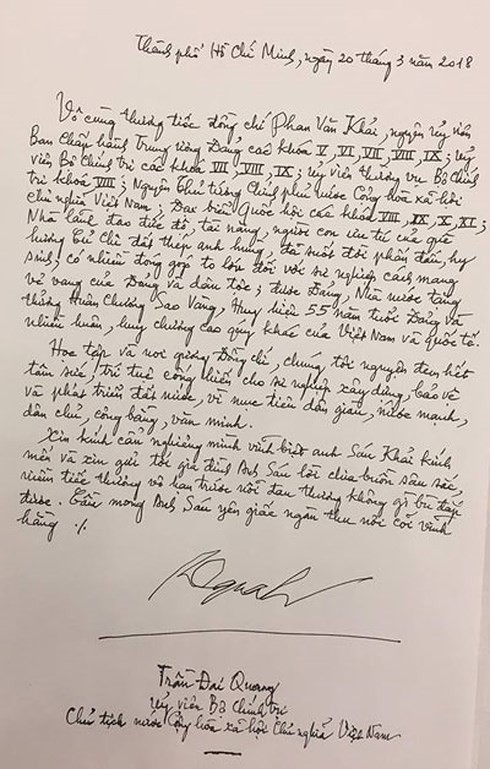 Thành phố Hồ Chí Minh, ngày 20 tháng 3 năm 2018
Vô cùng thương tiếc đồng chí Phan Văn Khải, nguyên Uỷ viên
Ban Chấp hành Trung ương Đảng các khóa V, VI, VII, VIII, IX; Uỷ
viên Bộ Chính trị các khóa VII, VIII, IX; Uỷ viên thường vụ Bộ Chính
trị khóa VIII; Nguyên Thủ tướng Chính phủ nước Cộng hòa xã hội
chủ nghĩa Việt Nam; Đại biểu Quốc hội các khóa VIII, IX, X, XI;
Nhà lãnh đạo đức độ, tài năng, người con ưu tú của quê
hương Củ Chi đất thép anh hùng, đã suốt đời phấn đấu, hy
sinh, có nhiều đóng góp to lớn đối với sự nghiệp cách mạng
vẻ vang của Đảng và dân tộc; được Đảng, Nhà nước tặng
thưởng Huân chương Sao Vàng, Huy hiệu 55 năm tuổi Đảng và
nhiều huân, huy chương cao quý khác của Việt Nam và quốc tế.
Học tập và noi gương Đồng chí, chúng tôi nguyện đem hết
tâm sức, trí tuệ cống hiến cho sự nghiệp xây dựng, bảo vệ
và phát triển đất nước, vì mục tiêu dân giàu, nước mạnh,
dân chủ, công bằng, văn minh.
Xin kính cẩn nghiêng mình vĩnh biệt anh Sáu Khải kính
mến và xin gửi tới gia đình Anh Sáu lời chia buồn sâu sắc,
niềm tiếc thương vô hạn trước nỗi đau thương không gì bù đắp
được. Cầu mong Anh Sáu yên giấc ngàn thu nơi cõi vĩnh
hằng ./.
Trần Đại Quang
Uỷ viên Bộ Chính trị
Chủ tịch nước Cộng hòa xã hội Chủ nghĩa Việt Nam